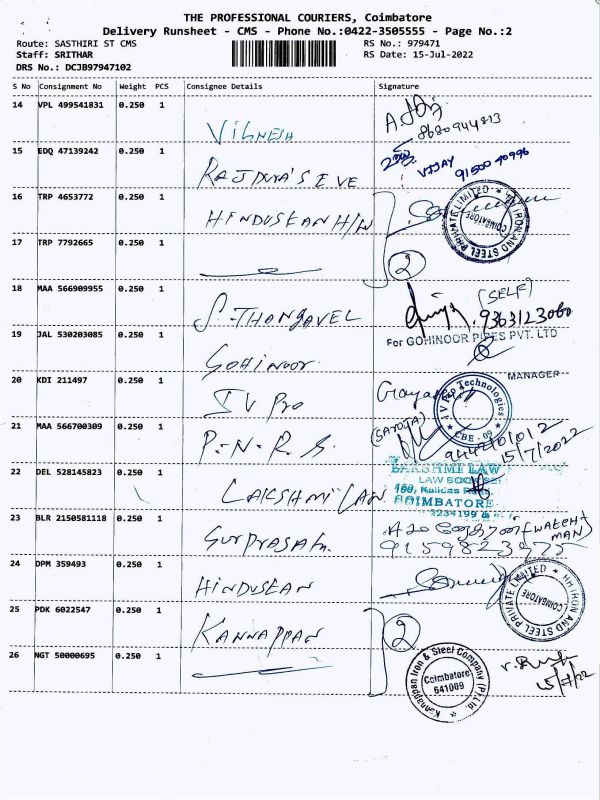 THE PROFESSIONAL COURIERS, Coimbatore
Delivery Runsheet - CMS - Phone No.:0422-3505555 - Page No.:2
Route: SASTHIRI ST CMS RS No.: 979471
Staff: SRITHAR RS Date: 15-Jul-2022
DRS No.: DCJB97947102
S No Consignment No Weight PCS Consignee Details Signature
14 VPL 499541831 0.250 1
VIGNESH 8680944813
15 EDQ 47139242 0.250 1
VIJAY 91500 40996
16 TRP 4653772 0.250 1
HINDUSEAN H/W
COIMBATORE
17 TRP 7792665 0.250 1
2
18 MAA 566909955 0.250 1
S. THANGAVEL (SELF)
9363123060
19 JAL 530203085 0.250 1
For GOHINOOR PIPES PVT. LTD
GOHINOOR
MANAGER
20 KDI 211497 0.250 1
IV Pro
I V Pro Technologies
CBE - 09
21 MAA 566700309 0.250 1
(SAROJA)
P.N.R.S. 15/7/2022
22 DEL 528145823 0.250 1
LAKSHMI LAW
LAKSHMI LAW
LAW BOO
COIMBATORE
23 BLR 2150581118 0.250 1
(WATCHMAN)
24 DPM 359493 0.250 1
HINDUSEAN
HH IRON AND STEEL PRIVATE LIMITED
COIMBATORE
25 PDK 6022547 0.250 1
KANNAPPAN 2
26 NGT 50000695 0.250 1
Kannappan Iron & Steel Company (P) Ltd.
Coimbatore
641009
15/7/22